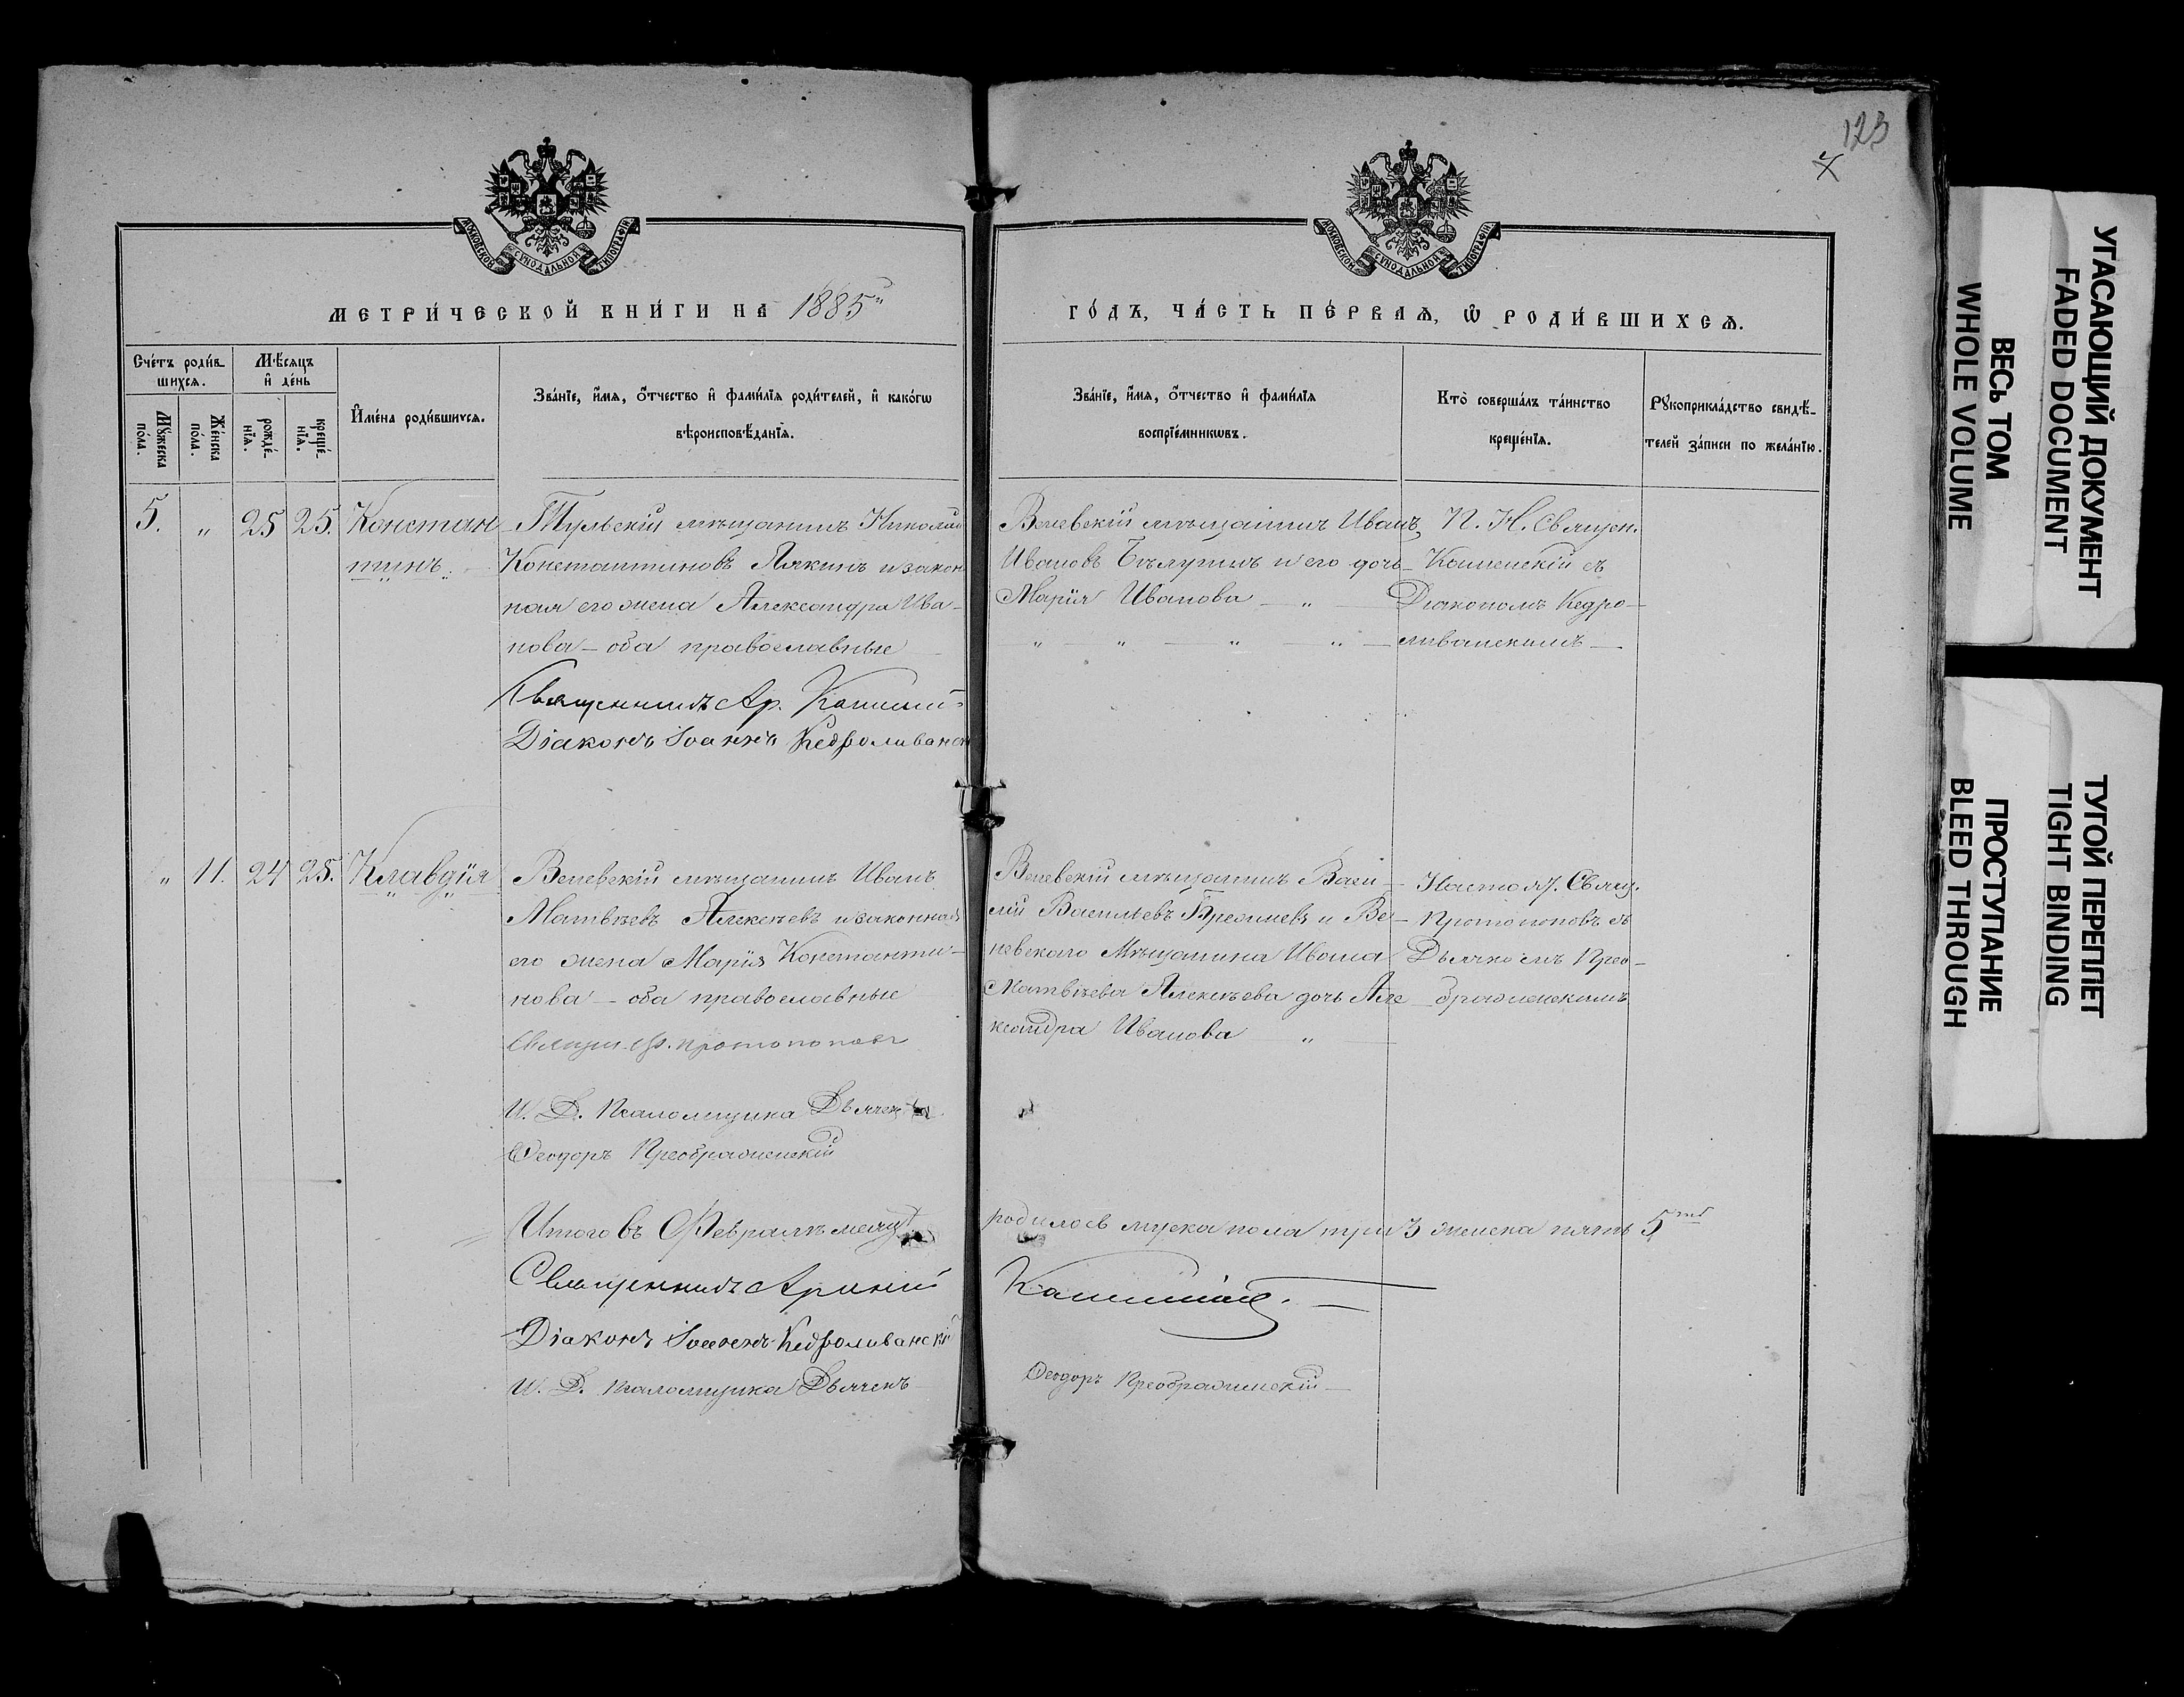 123
7
МОСКОВСКОЙ СѴНОДАЛЬНОЙ ТИПОГРАФІИ
МОСКОВСКОЙ СѴНОДАЛЬНОЙ ТИПОГРАФІИ
МЕТРИ́ЧЕСКОЙ КНИ́ГИ НА 1885й
ГО́ДЪ, ЧА́СТЬ ПЕ́РВАѦ, Ѡ҆ РОДИ́ВШИХСѦ.
Сче́тъ роди́в-
шихсѧ.
Мѣ́сѧцъ
и҆ де́нь
Мꙋ́жеска
по́ла.
Же́нска
по́ла.
рожде́-
нїѧ.
креще́-
нїѧ.
И҆мена̀ роди́вшихсѧ.
Зва́нїе, и҆́мѧ, ѻ҆́тчество и҆ фами́лїѧ роди́телей, и҆ како́гѡ
вѣроисповѣ́данїѧ.
Зва́нїе, и҆́мѧ, ѻ҆́тчество и҆ фами́лїѧ
воспрїе́мникѡвъ.
Кто̀ соверша́лъ та́инство
креще́нїѧ.
Рꙋкоприкла́дство свидѣ́-
телей за́писи по жела́нїю.
5. " 25 25. Константинъ.
Тульскій мѣщанинъ Николай
Константиновъ Лякинъ и закон
ная его жена Александра Ива-
нова - оба православные
Священникъ Ар.
Діаконъ Іоаннъ Кедроливанск
Веневскій мѣщанинъ Иванъ
Ивановъ Бѣлугинъ и его дочь
Марія Иванова - "
" - " - " - " -
П. Н. Священ.
Каменскій съ
Діакономъ Кедро-
ливанскимъ
" 11. 24 25. Клавдія
Веневскій мѣщанинъ Иванъ
Матвѣевъ Алексѣевъ и законная
его жена Марія Константи-
нова - оба православные
Священ. Протопоповъ
И. Д. Псаломщика Дьячекъ
Ѳеодоръ Преображенскій
Веневскій мѣщанинъ Васи-
лій Васильевъ и Ве-
невскаго Мѣщанина Ивана
Матвѣева Алексѣева дочь Але
ксандра Иванова "
Настоят. Свящ.
Протопоповъ съ
Дьячкомъ Прео-
браженскимъ
Итого въ Февралѣ месяцѣ родилось муска пола три 3 женска пять 5
Священникъ
Діаконъ Іоаннъ Кедроливанскій
И. Д. псаломщика Дьячекъ Ѳеодоръ Преображенскій
УГАСАЮЩИЙ ДОКУМЕНТ
FADED DOCUMENT
ВЕСЬ ТОМ
WHOLE VOLUME
ТУГОЙ ПЕРЕПЛЕТ
TIGHT BINDING
ПРОСТУПАНИЕ
BLEED THROUGH